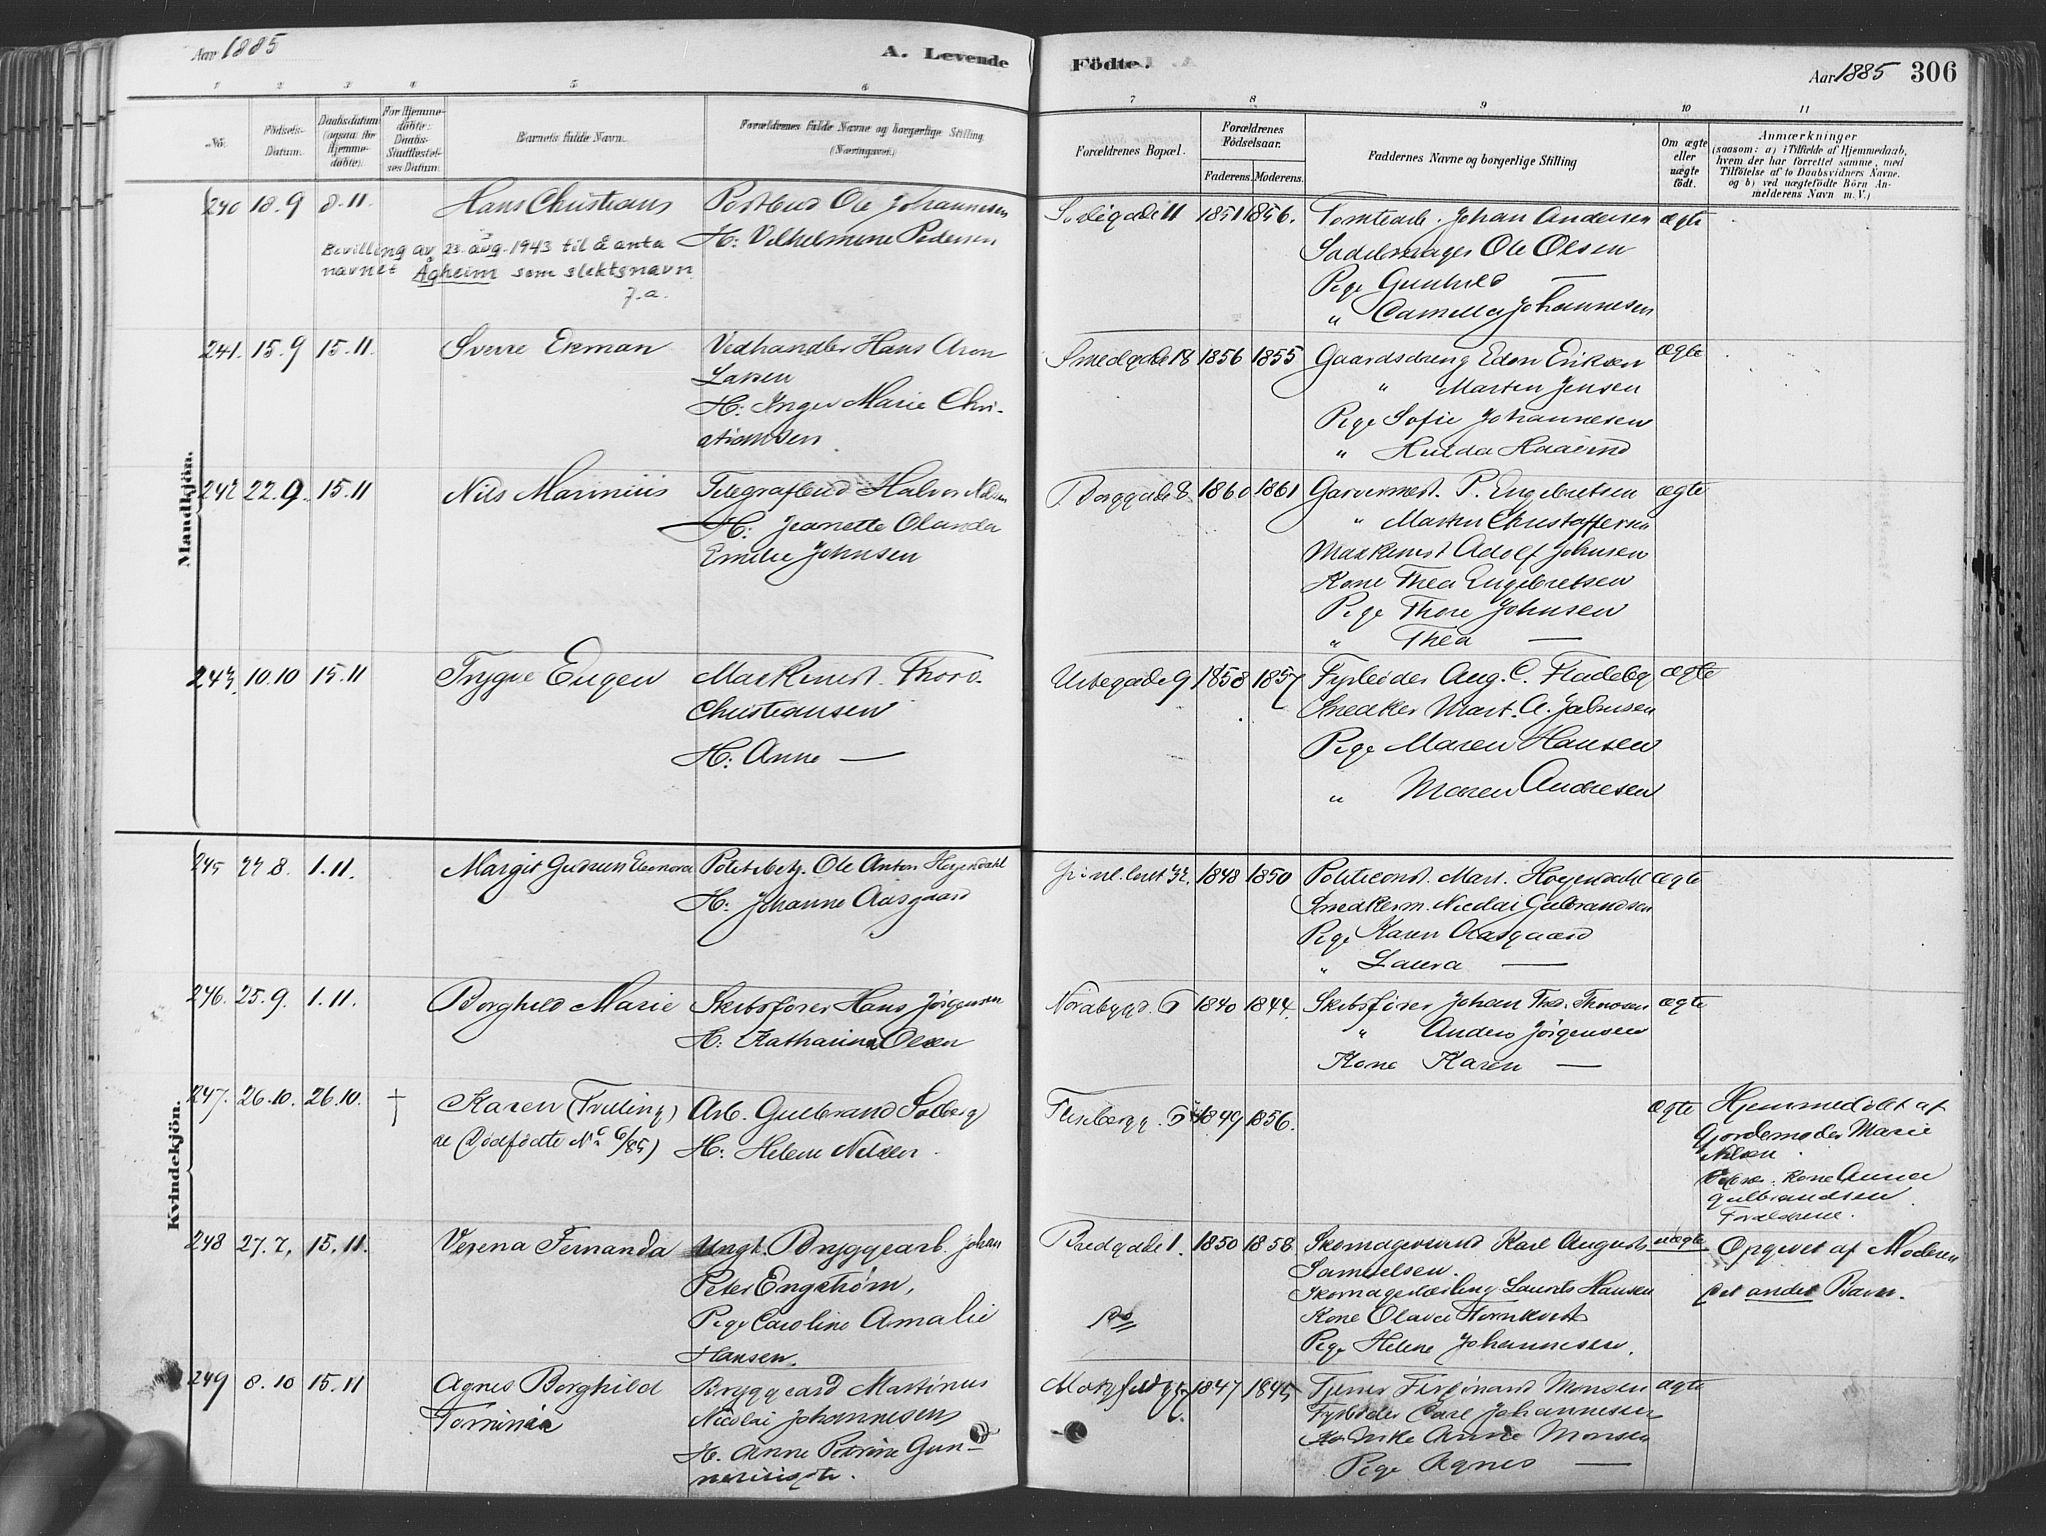 Aar 1885
A. Levende
Födte.
Aar 1885 306
1 2 3 4 5 6 7 8 9 10 11
No.
Födsels-
Datum.
Daabsdatum
(ogsaa for
Hjemme-
döbte).
For Hjemme-
döbte:
Daabs-
Stadfæstel-
ses-Datum.
Barnets fulde Navn.
Forældrenes fulde Navne og borgerlige Stilling
(Næringsvei.)
Forældrenes Bopæl.
Forældrenes
Födselsaar.
Faderens. Moderens.
Faddernes Navne og borgerlige Stilling
Om ægte
eller
uægte
födt.
Anmærkninger
(saasom: a) i Tilfælde af Hjemmedaab,
hvem der har forrettet samme, med
Tilföielse af to Daabsvidners Navne.
og b) ved uægtefödte Börn An-
melderens Navn m. V.)
Mandkjön.
240 18.9 8.11. Hans Christians
Bevilling av 23. aug. 1943 til å anta
navnet Ågheim som slektsnavn
J.a.
Postbud Ole Johannesen
H: Vilhelmine Pedersen
11 1851 1856.
Tomtearb. Johan Andersen
Sadelmager Ole Olsen
Pige Gunhild —
" Camilla Johannesen
ægte
241. 15.9 15.11. Sverre Ekman
Vedhandler Hans Aron
Larsen
H: Inger Marie Chri-
stiansen
Smedgade 18 1856 1855
Gaardsdreng Edv. Eriksen
" Martin Jensen
Pige Sofie Johannesen
" Hulda
ægte
242 22.9. 15.11 Nils Marinius
Telegrafbud Halvor Nilsen
H: Jeanette Olanda
Emilie Johnsen
Borggade 8 1860 1861
Garvermest. P. Engebretsen
" Martin Christoffersen
Maskinist Adolf Johnsen
Kone Thea Engebretsen
Pige Thora Johnsen
" Thea —
ægte
243. 10.10 15.11 Trygve Eugen
Maskinist. Thorv.
Christiansen
H: Anne —
Urtegade 9 1858 1857
Fyrbøder Aug. C. Fladeby
Snedker Mart. A. Johnsen
Pige Maren Hansen
" Maren Andresen
ægte
Kvindekjön.
245 27.8. 1.11. Margit Gudrun Eleonora
Politibetj. Ole Anton Høyendahl
H: Johanne Aasgaard
1848 1850
Politiconst. Mart. Høyendahl
Snedkerm. Nicolai Gulbrandsen
Pige Karen Aasgaard
" Laura —
ægte
246. 25.9. 1.11. Borghild Marie
Skibsfører Hans Jørgensen
H: Katharina Olsen
Nordbygd. 6 1840 1844.
Skibsfører Johan Thv. Thorvsen
" Anders Jørgensen
Kone Karen —
ægte
247. 26.10. 26.10. † Karen (Trilling)
se (Dødfødte No 6/85)
Arb. Gulbrand Solberg
H: Helene Nilsen
Flisebergg. 1849 1856.
ægte
Hjemmedøbt af
Gjordemoder Marie
Nilsen.
Kone Anna
Gulbrandsen
Forældrene.
248 27.7. 15.11. Verena Fernanda
Ungk. Bryggearb. Johan
Peter Engstrøm,
Pige Caroline Amalie
Hansen.
Bredgade 1. 1850 1858
Skomagersvend Karl August
Samuelsen.
Skomagerlærling Laurits Hansen
Kone Olava
Pige Helene Johannesen.
uægte
Opgivet af Moderen
Det andet Barn.
249 8.10 15.11 Agnes Borghild
Tominia
Bryggearb Martinus
Nicolai Johannesen
H. Anne Petrine Gun-
nerisigdt.
1847 1845
Tjener Ferdinand Monsen
Fyrbøder Carl Johannesen
Enke Anne Monsen
Pige Agnes —
ægte